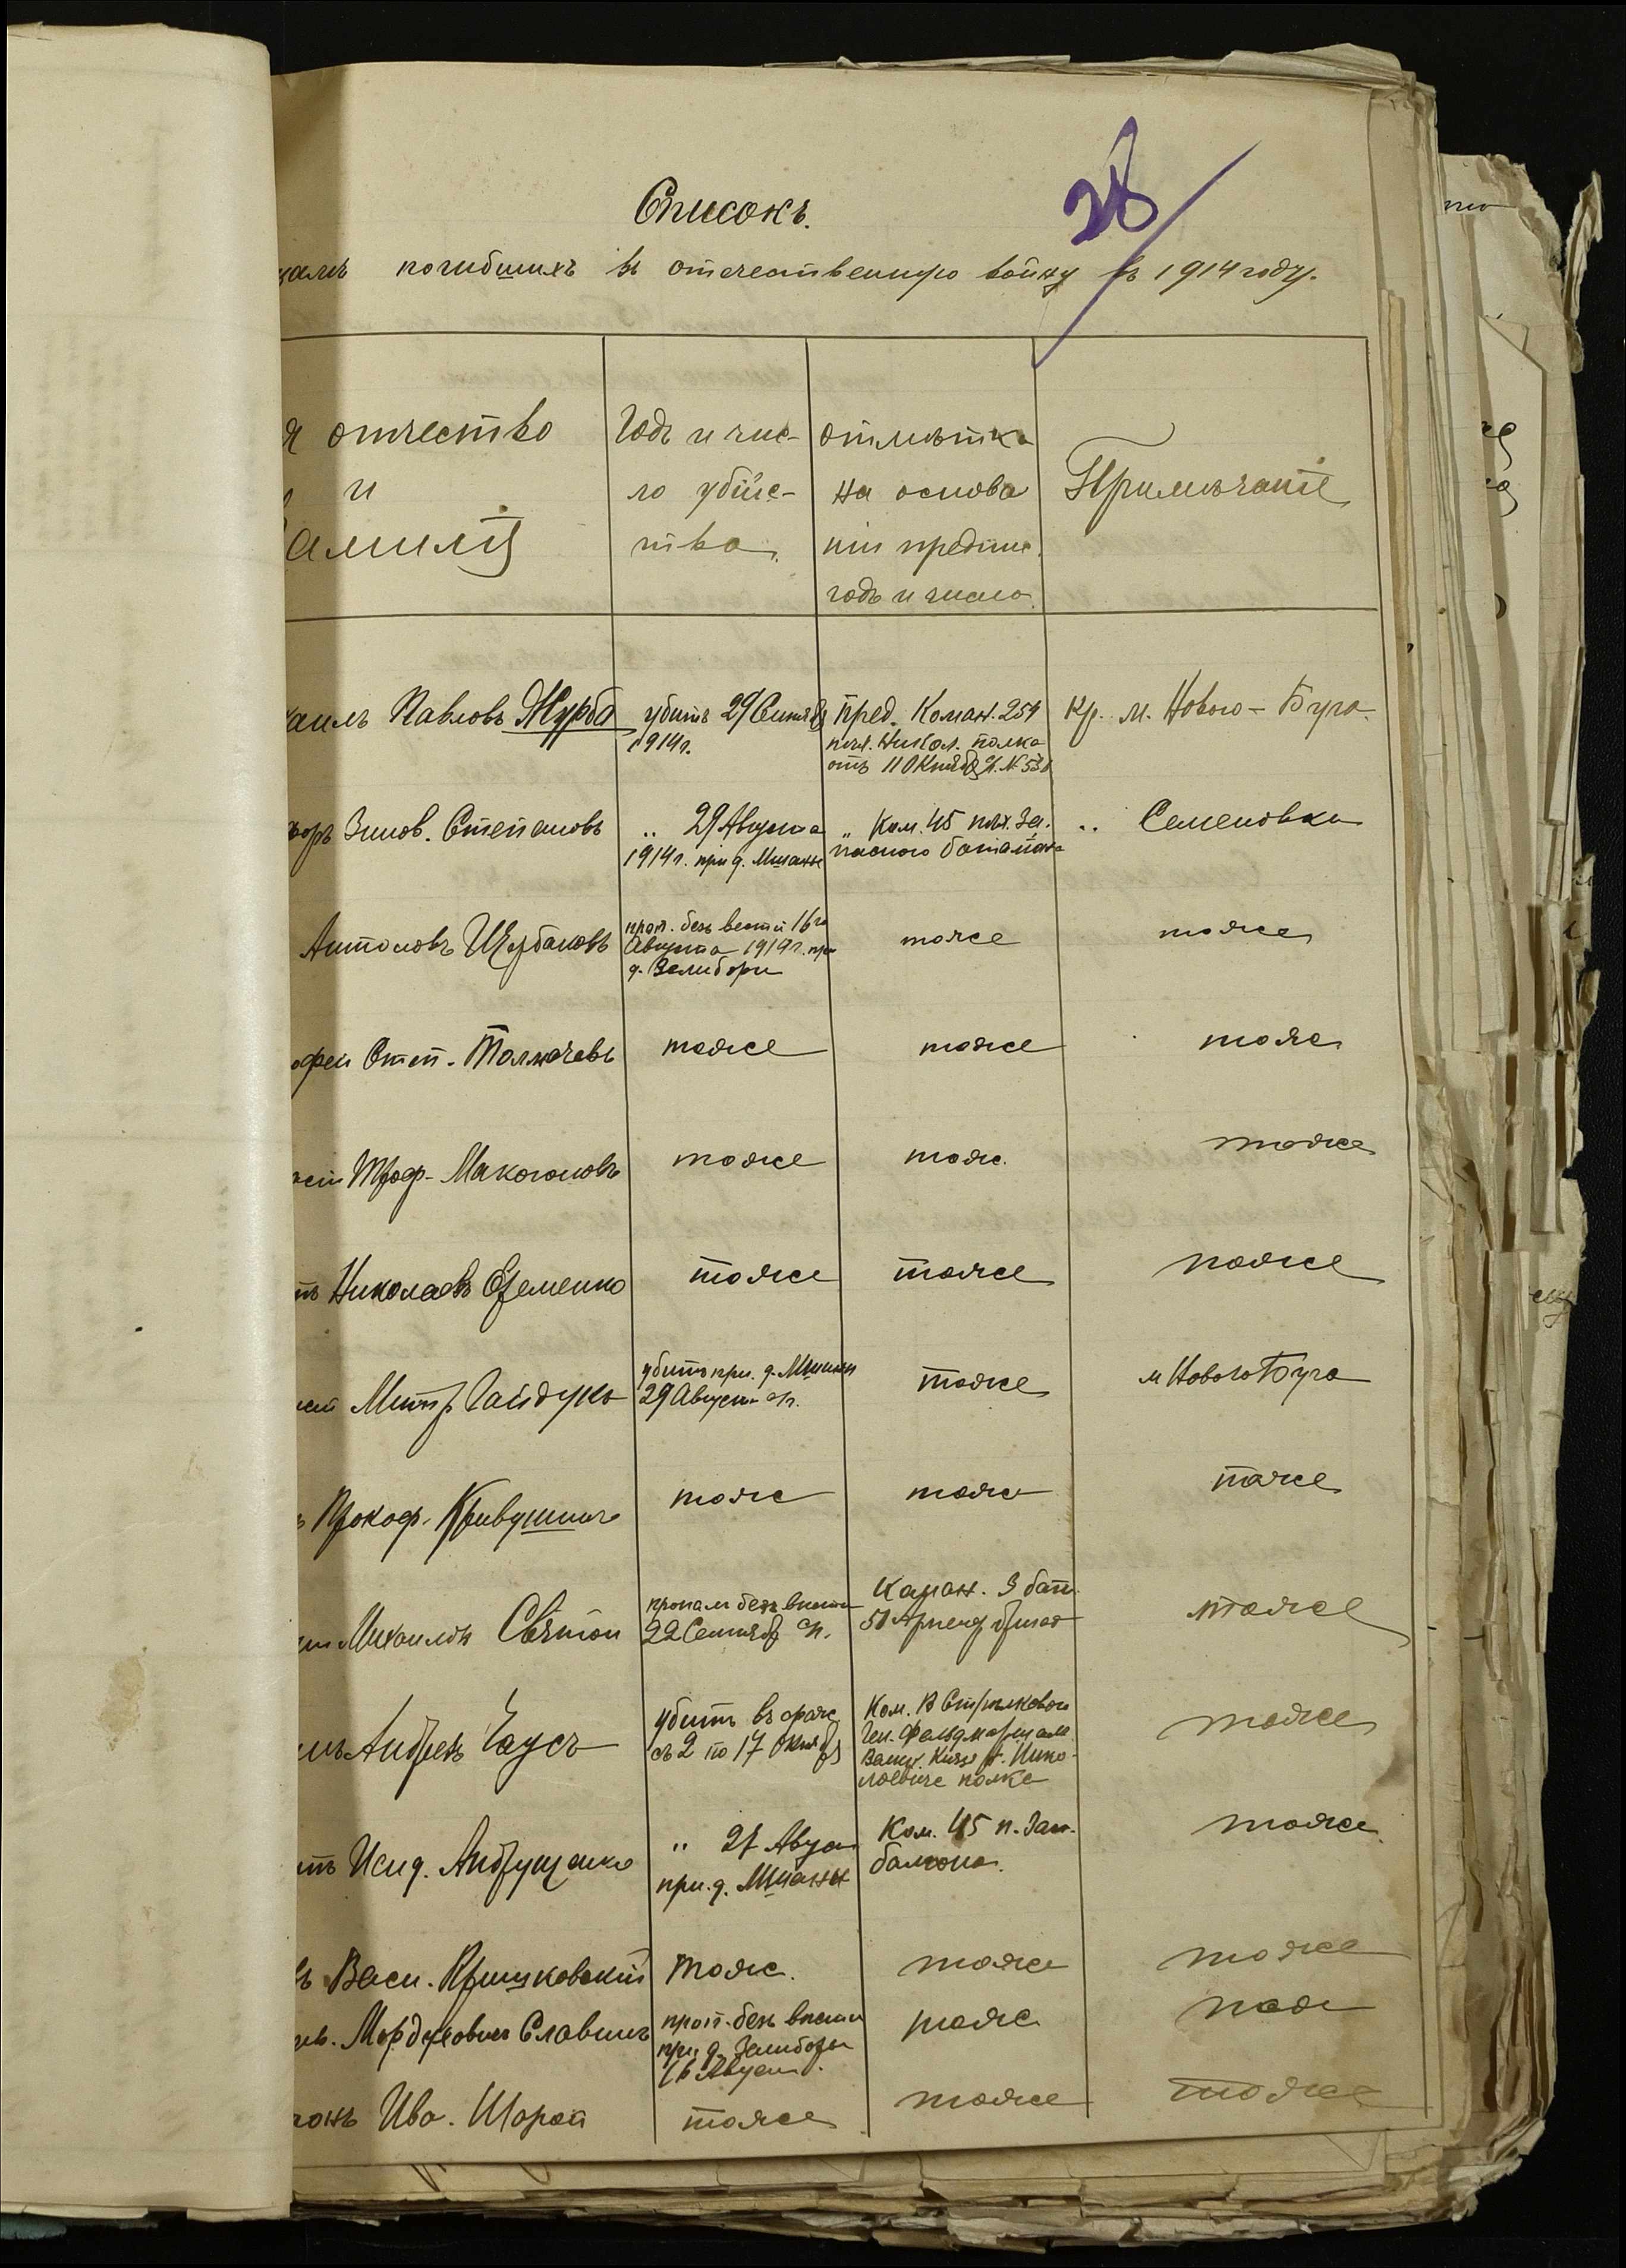 28
Списокъ.
погибшихъ въ отечественную войну въ 1914 году.
отчество
и
амилія
Годъ и чис-
ло убійс-
тва.
отмѣтка
на основа
ніи предпис.
годъ и число.
Примѣчаніе
Павловъ Журба
убитъ 29 Сентября
1914 г.
Пред. Коман. 259
пѣх. Никол. полка
отъ 11 Октября
кр. м. Новаго-Буга.
Зинов. Степановъ
„ 29 Августа
1914 г. при д. Мшаны
„ Ком. 45 пѣх. За-
паснаго баталіона
„ Семеновка
Антоновъ Щербаковъ
проп. безъ вести 16го
Августа 1914 г. при
д. Залибори
тоже
тоже
офей Степ. Толмачевъ
тоже
тоже
тоже
Троф. Макогоновъ
тоже
тож.
тоже
Николаевъ Еременко
тоже
тоже
тоже
Митр. Гайдукъ
убитъ при д. Мшаны
29 Августа
тоже
м Новаго Буга
Прокоф. Кривушинъ
тоже
тоже
тоже
Михаиловъ Святой
пропалъ безъ вести
22 Сентября
Коман. 3 бат.
тоже
Андреевъ Чаусъ
убитъ въ сраж.
съ 2 по 17 Октября
Ком. Стрѣлковаго
Ген. Фельдмаршала
Велик. Князя Нико-
лаевича полка
тоже
Исид. Андрущенко
„ 27 Август
при д. Мшаны
Ком. 45 п. Зап.
балиона.
тоже
Васи. Кришковскій
тоже.
тоже
тоже
Мордуховичъ Славинъ
проп. безъ вести
при д. Залиборы
16 Август.
тоже
тоже
Ива. Шорой
тоже
тоже
тоже